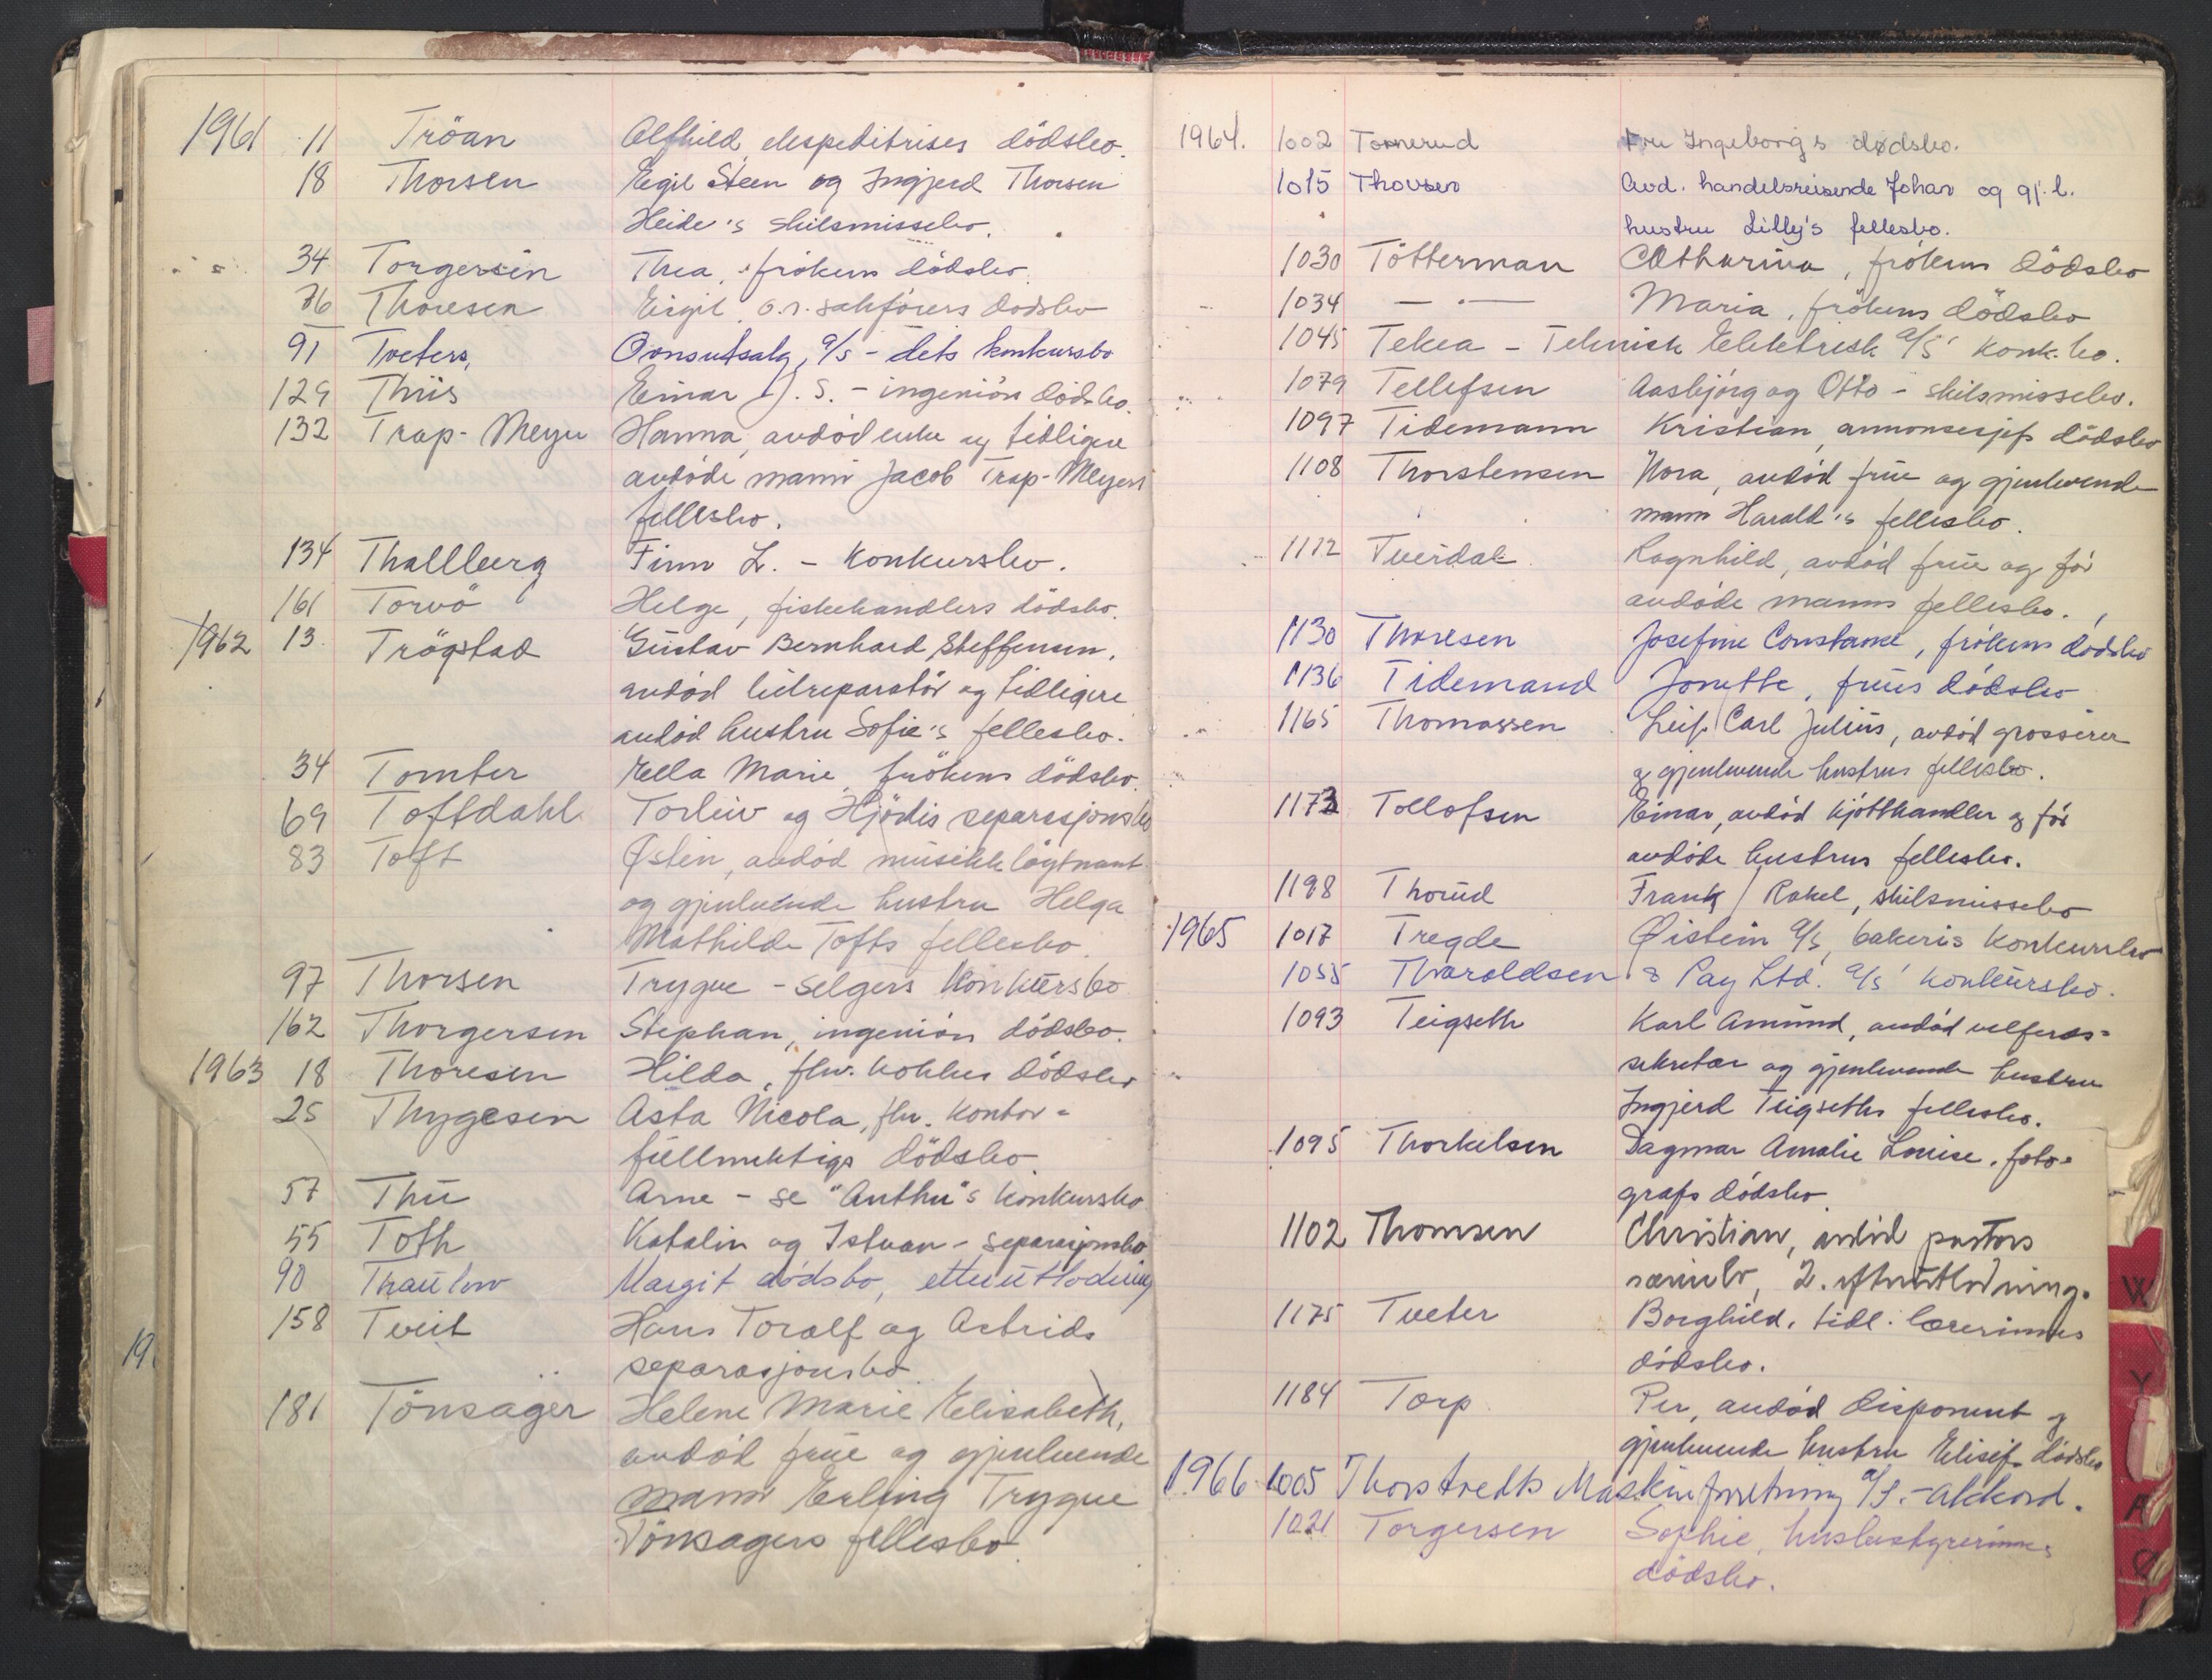 1961 11 Tröan Alfhild, ekspeditrises dödsbo.
18 Thorsen Egil Steen og Ingjerd Thorsen
Heide's skilsmissebo.
34 Torgersen Thea, frökens dödsbo.
76 Thoresen Eigil, o.r. sakförers dödsbo
91 Tveters, Consutsalg, a/s - dets konkursbo
129 Thiis Einar J. S. - ingeniörs dödsbo.
132 Trap-Meyer Hanna, avdöd enke og tidligere
avdöde mann Jacob Trap-Meyers
fellesbo.
134 Thallberg Finn L. - Konkursbo.
161 Torvö Helge, fiskehandlers dödsbo.
1962 13. Trögstad Gustav Bernhard Steffensen,
avdöd bilreparatör og tidligere
avdöd hustru Sofie's fellesbo.
34 Tomter Ella Marie, frökens dödsbo.
69 Toftdahl Torleiv og Hjödis separasjonsbo
83 Toft Østen, avdöd musikklöytnant
og gjenlevende hustru Helga
Mathilde Tofts fellesbo.
97 Thorsen Trygve - selgers Konkursbo
162 Thorgersen Stephan, ingeniörs dödsbo.
1963 18 Thoresen Hilda, fhv. kokkes dödsbo
25 Thygesen Asta Nicola, fhv. kontor-
fullmektigs dödsbo.
57 Thu Arne - se "Anthu"s konkursbo
55 Toth Katalin og Istvan - separasjonsbo
90 Thaulow Margit dödsbo, etterutlodning
158 Tveit Hans Toralf og Astrids
separasjonsbo.
181 Tönsager Helene Marie Elisabeth,
avdöd frue og gjenlevende
mann Erling Trygve
Tönsagers fellesbo.
1964. 1002 Tomerud Fru Ingeborgs dødsbo.
1015 Thovsen Avd. handelsreisende Johan og gj.l.
hustru Lilly's fellesbo.
1030 Tötterman Catharina, frökens dödsbo
1034 — " — Maria, frökens dödsbo
1045 Tekea - Teknisk Elektrisk A/S' konk.bo.
1079 Tellefsen Aasbjörg og Otto - skilsmissebo.
1097 Tidemann Kristian, annonsesjefs dödsbo
1108 Thorstensen Nora, avdöd frue og gjenlevende
mann Harald's fellesbo.
1112 Tverdal Ragnhild, avdöd frue og för
avdöde manns fellesbo.
1130 Thoresen Josefine Constance, frökens dödsbo
1136 Tidemand Jonette, frues dödsbo
1165 Thomassen Leif Carl Julius, avdöd grosserer
og gjenlevende hustrus fellesbo.
1173 Tollofsen Einar, avdöd kjötthandler og för
avdöde hustrus fellesbo.
1198 Thorud Frank / Rakel, skilsmissebo
1965 1017 Tregde Øistein A/S, bakeris konkursbo
1055 Tharoldsen & Pay Ltd. A/S' konkursbo.
1093 Teigseth Karl Amund, avdöd velferds-
sekretær og gjenlevende hustru
Ingjerd Teigseths fellesbo.
1095 Thorkelsen Dagmar Amalie Louise, foto-
grafs dödsbo
1102 Thomsen Christian, avdöd pastors
særiebo, 2. efterutlodning.
1175 Tveter Borghild, tidl. lærerinnes
dödsbo.
1184 Torp Per, avdöd disponent og
gjenlevende hustru Elisif dödsbo
1966 1005 Thorstvedts Maskinforretning A/S. - akkord.
1021 Torgersen Sophie, husbestyrerinnes
dödsbo.
19
W
Y